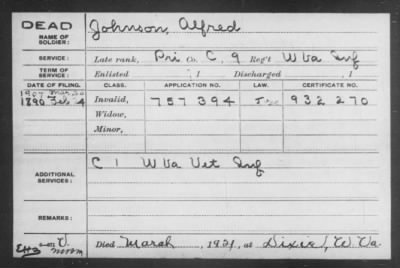 DEAD
NAME OF SOLDIER: Johnson, Alfred
SERVICE: Late rank, Pri Co. C, 9 Reg't W Va Inf
TERM OF SERVICE: Enlisted , 1 Discharged , 1
DATE OF FILING. CLASS. APPLICATION NO. LAW. CERTIFICATE NO.
1907 Mar 20
1890 Feb 4 Invalid, 757 394 932 270
Widow,
Minor,
ADDITIONAL SERVICES: C 1 W Va Vet Inf
REMARKS:
Died March , 1921, at Dixie, W. Va.